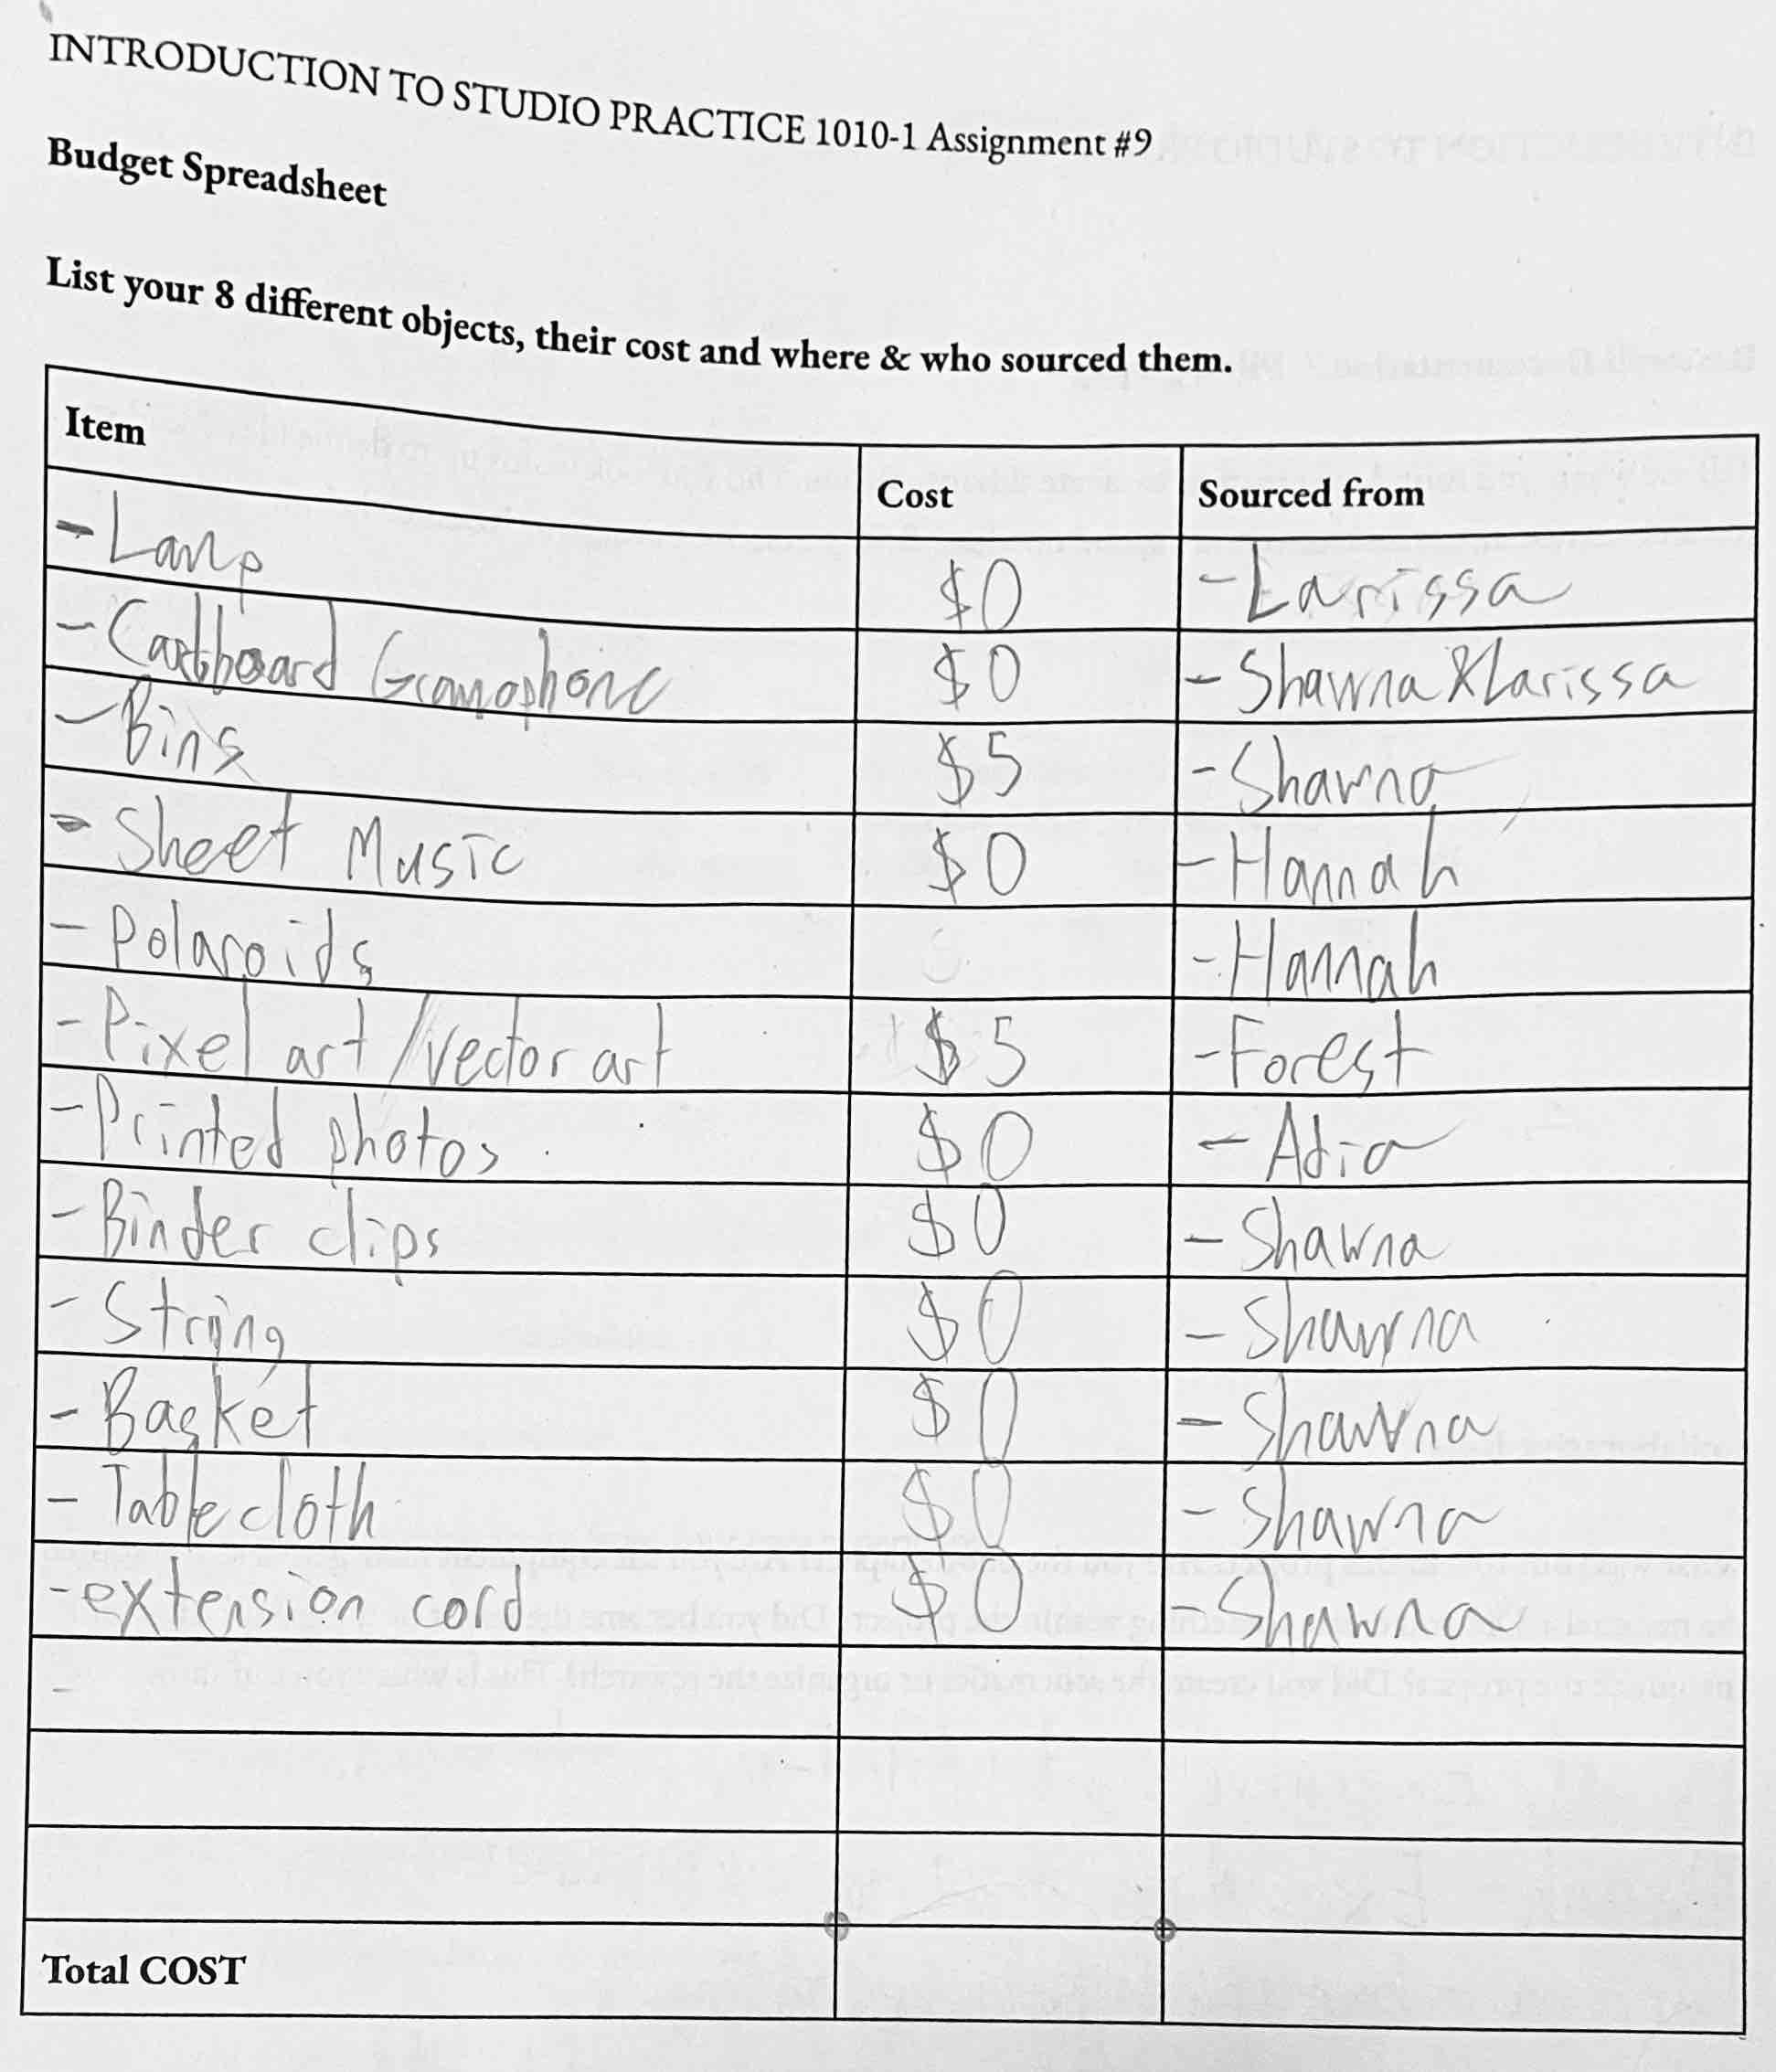 INTRODUCTION TO STUDIO PRACTICE 1010-1 Assignment #9
Budget Spreadsheet
List your 8 different objects, their cost and where & who sourced them.
Item Cost Sourced from
- Lamp $0 - Larissa
- Cardboard Gramophone $0 - Shawna & Larissa
- Bins $5 - Shawna
- Sheet Music $0 - Hannah
- Polaroids - Hannah
- Pixel art / vector art $5 - Forest
- Printed photos $0 - Adia
- Binder clips $0 - Shawna
- String $0 - Shawna
- Basket $0 - Shawna
- Table cloth $0 - Shawna
- extension cord $0 - Shawna
-
Total COST